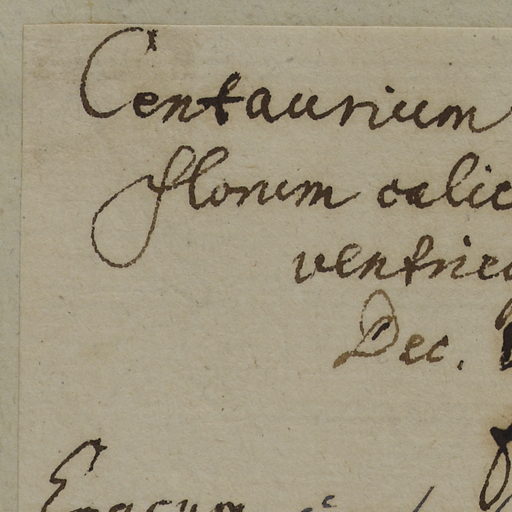 Centaurium
florum calic
ventric
Dec.
Exacum